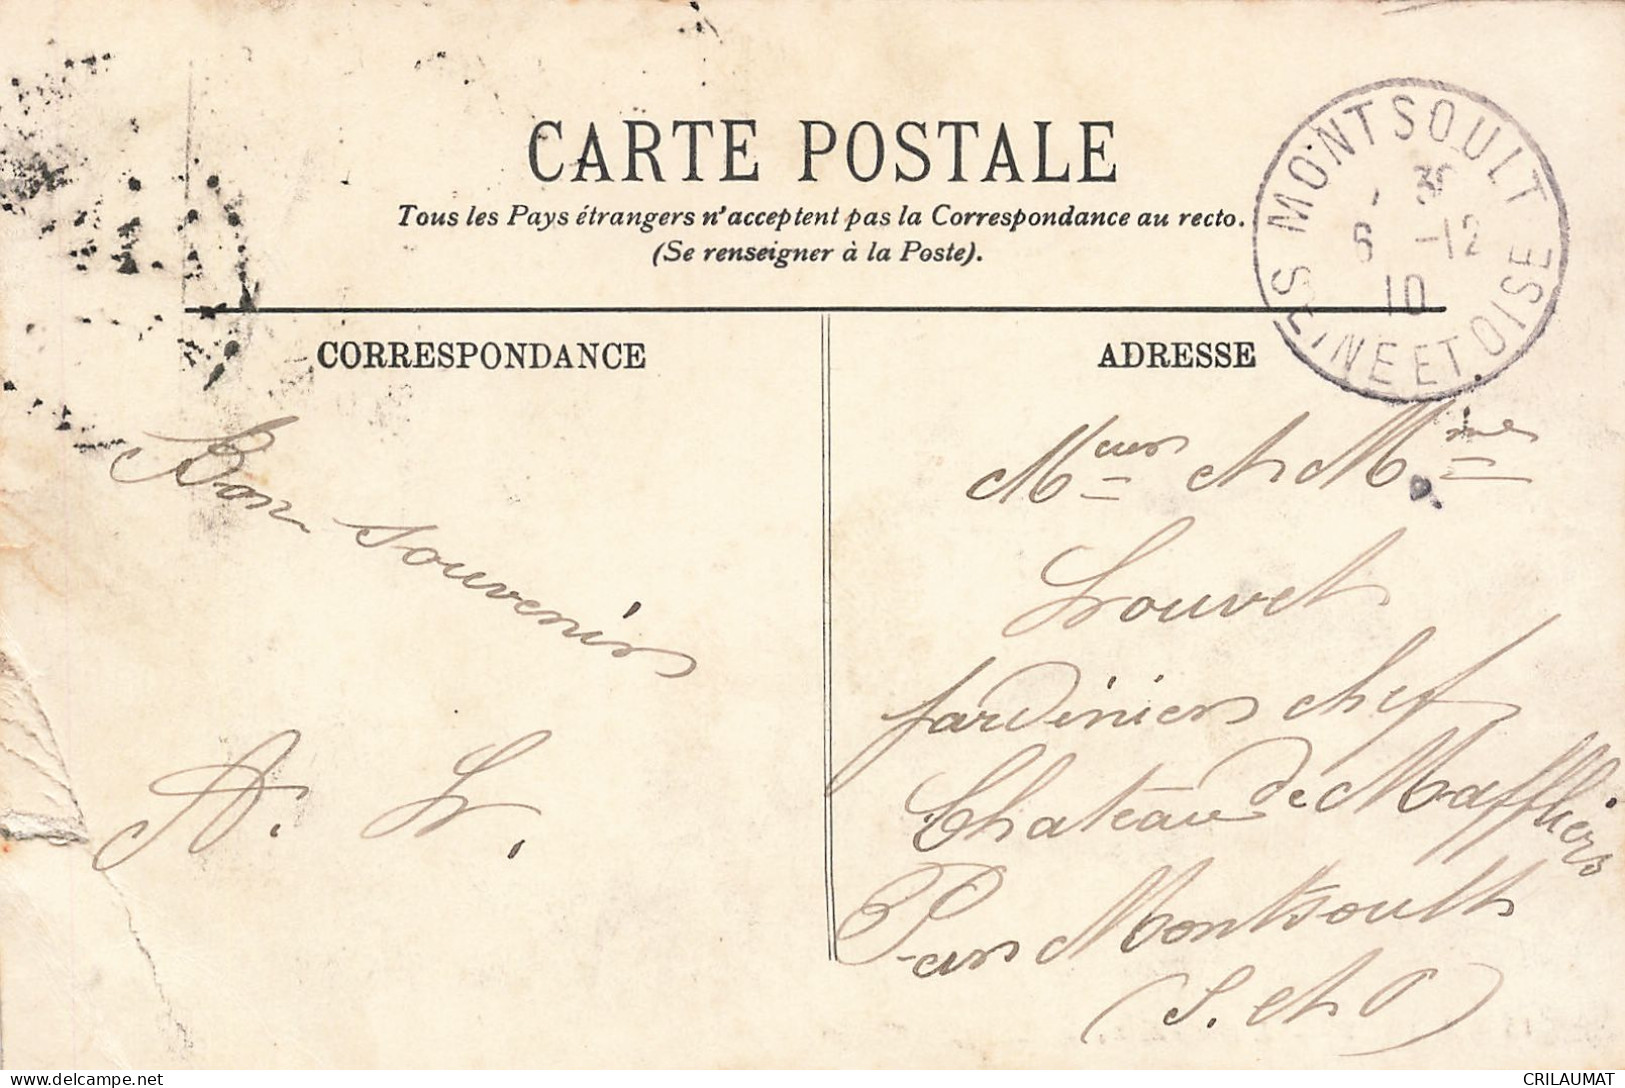 CARTE POSTALE
Tous les Pays étrangers n'acceptent pas la Correspondance au recto.
(Se renseigner à la Poste).
MONTSOULT
6 -12
10
SEINE ET OISE
CORRESPONDANCE
Bon souvenir
A. L.
ADRESSE
Meur et Mme
Louvet
Jardinier chef
Chateau de Maffliers
Par Montsoult
(S. et O)
delcampe.net
CRILAUMAT